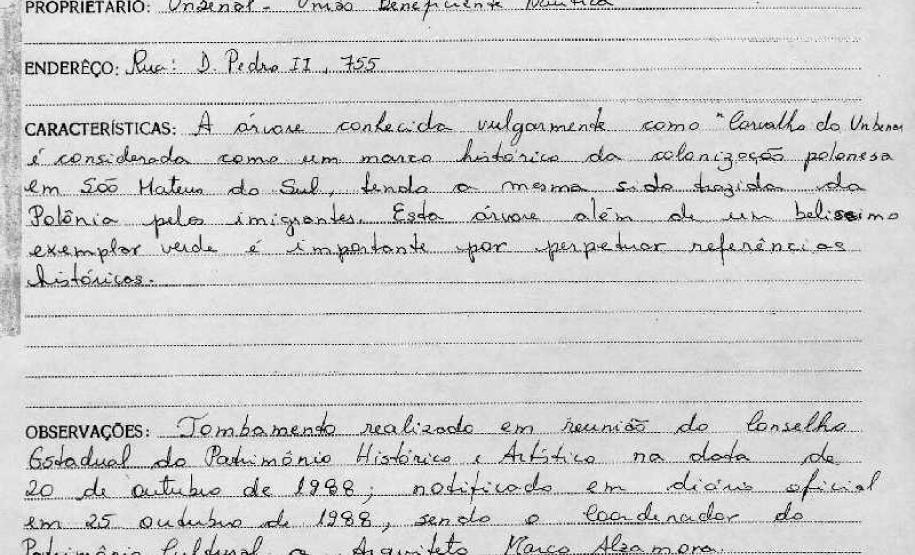 PROPRIETÁRIO: Unbenal - União Beneficiente Náutica
ENDERÊÇO: Rua: D. Pedro II, 755
CARACTERÍSTICAS: A árvore conhecida vulgarmente como "Carvalho do Unbenal
é considerada como um marco histórico da colonização polonesa
em São Mateus do Sul, tendo a mesma sido trazida da
Polônia pelos imigrantes. Esta árvore além de um belissimo
exemplar verde é importante por perpetuar referências
históricas.
OBSERVAÇÕES: Tombamento realizado em reunião do Conselho
Estadual do Patrimônio Histórico e Artístico na data de
20 de outubro de 1988; notificado em diário oficial
em 25 outubro de 1988, sendo o Coordenador do
Patrimônio Cultural o Arquiteto Marco Alzamora.